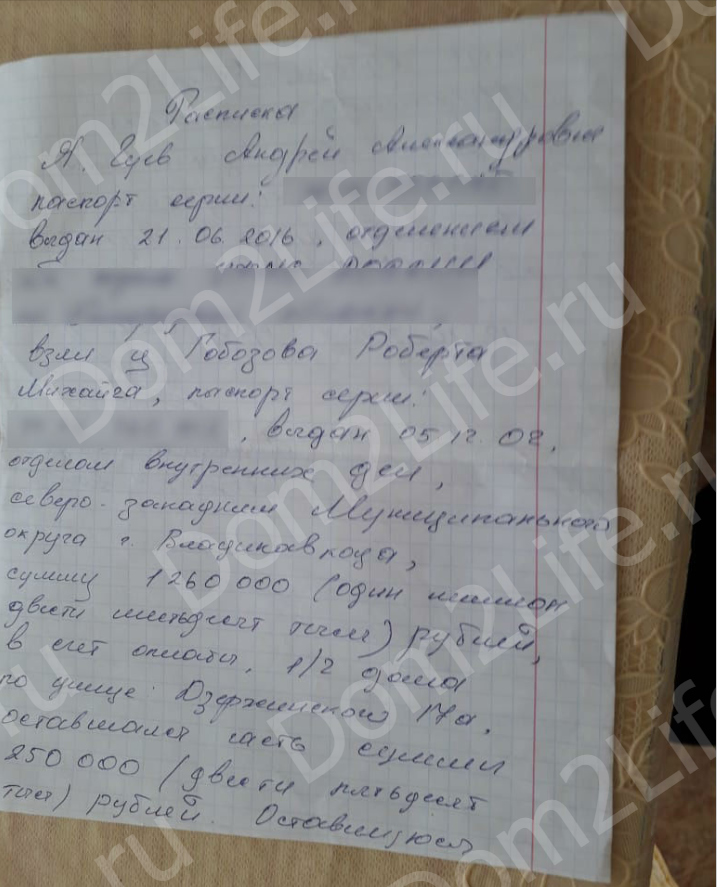 Расписка
Я. Гуев Андрей Александрович
паспорт серии:
выдан 21.06.2016, отделением
взял у Гобозова Роберта
Михайла, паспорт серии:
, выдан 05.12.02,
отделом внутренних дел,
северо-западным Муниципального
округа г. Владикавкоза,
сумму 1260 000 (один миллион
двести шестьдесят тысяч) рублей,
в счет оплаты, 1/2 дома
по улице Дзержинского 17а.
оставшаяся часть суммы
250 000 (двести пятьдесят
тысяч) рублей. Оставшуюся
Dom2Life.ru
Dom2Life.ru
Dom2Life.ru
Dom2Life.ru